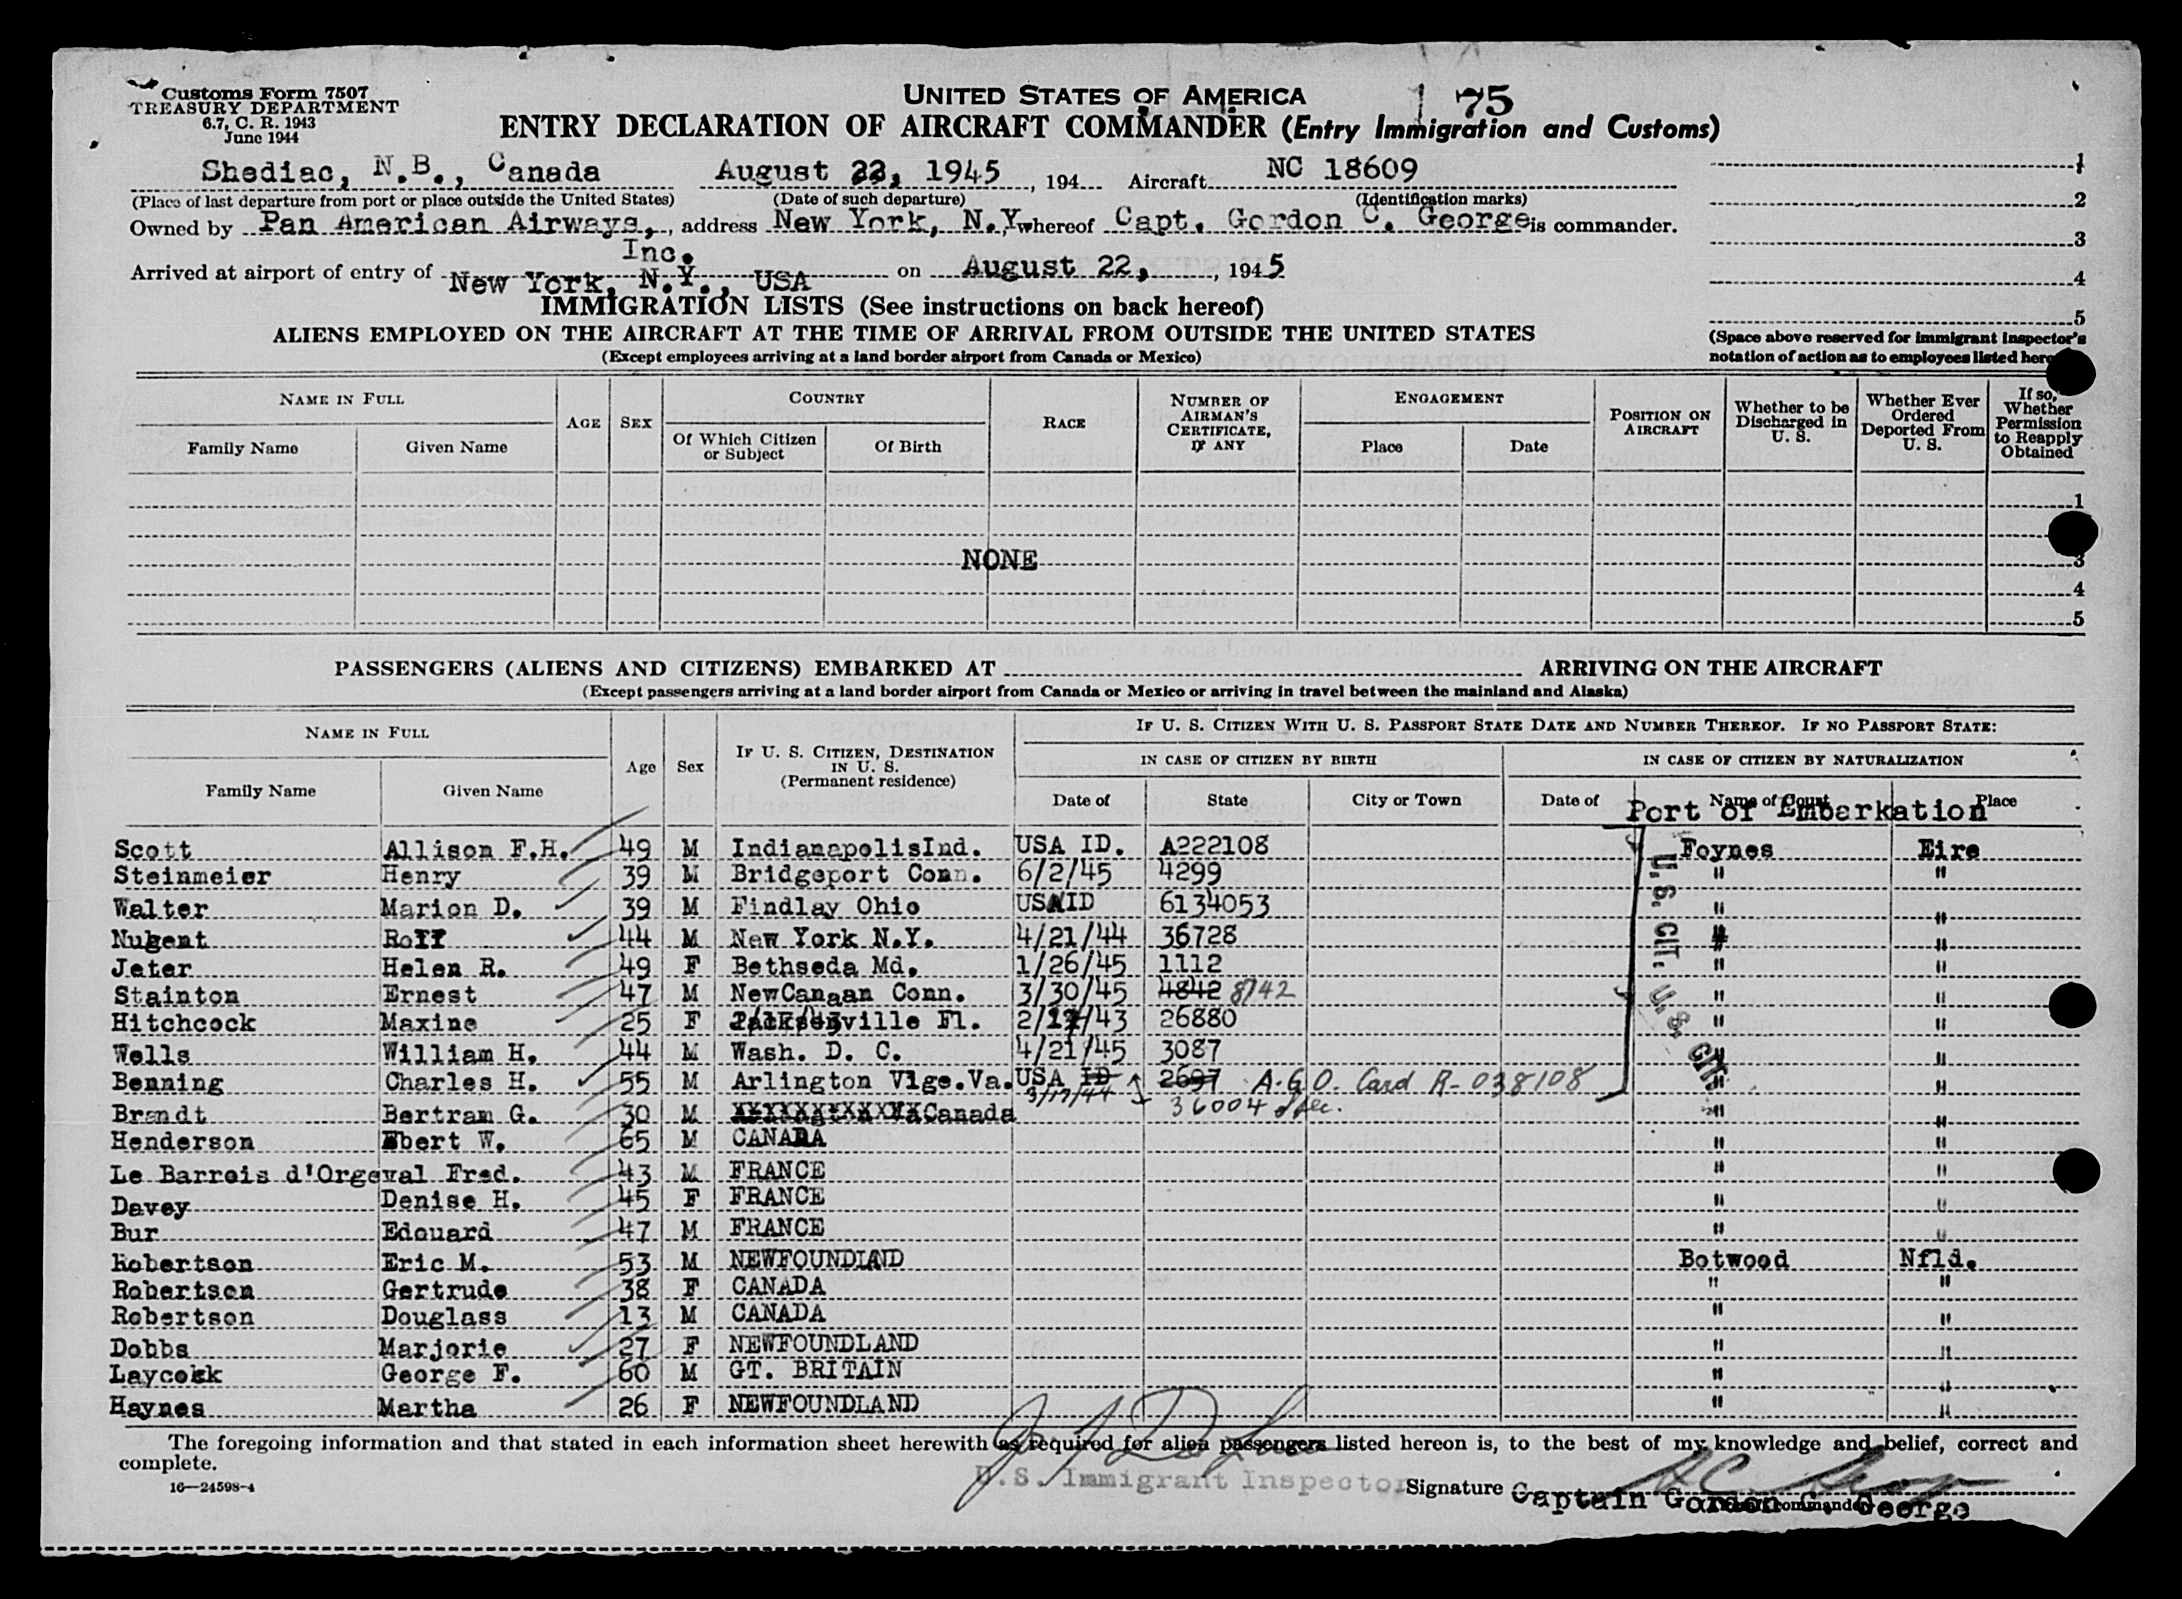 Customs Form 7507
TREASURY DEPARTMENT
6.7, C. R. 1943
June 1944
UNITED STATES OF AMERICA
75
ENTRY DECLARATION OF AIRCRAFT COMMANDER (Entry Immigration and Customs)
Shediac, N.B., Canada August 22, 1945, 194 Aircraft NC 18609
(Place of last departure from port or place outside the United States) (Date of such departure) (Identification marks)
Owned by Pan American Airways, Inc., address New York, N.Y. whereof Capt. Gordon C. George is commander.
Arrived at airport of entry of New York, N.Y., USA on August 22, 1945
1
2
3
4
5
(Space above reserved for immigrant inspector's
notation of action as to employees listed
IMMIGRATION LISTS (See instructions on back hereof)
ALIENS EMPLOYED ON THE AIRCRAFT AT THE TIME OF ARRIVAL FROM OUTSIDE THE UNITED STATES
(Except employees arriving at a land border airport from Canada or Mexico)
NAME IN FULL AGE SEX COUNTRY RACE NUMBER OF AIRMAN'S CERTIFICATE, IF ANY ENGAGEMENT POSITION ON AIRCRAFT Whether to be Discharged in U. S. Whether Ever Ordered Deported From U. S. If so, Whether Permission to Reapply Obtained
Family Name Given Name Of Which Citizen or Subject Of Birth Place Date
1
NONE 3
4
5
PASSENGERS (ALIENS AND CITIZENS) EMBARKED AT ARRIVING ON THE AIRCRAFT
(Except passengers arriving at a land border airport from Canada or Mexico or arriving in travel between the mainland and Alaska)
NAME IN FULL Age Sex IF U. S. CITIZEN, DESTINATION IN U. S. (Permanent residence) IF U. S. CITIZEN WITH U. S. PASSPORT STATE DATE AND NUMBER THEREOF. IF NO PASSPORT STATE:
IN CASE OF CITIZEN BY BIRTH IN CASE OF CITIZEN BY NATURALIZATION
Family Name Given Name Date of State City or Town Date of Name of Court Place
Port of Embarkation
Scott Allison F.H. 49 M IndianapolisInd. USA ID. A222108 Foynes Eire
Steinmeier Henry 39 M Bridgeport Conn. 6/2/45 4299 " "
Walter Marion D. 39 M Findlay Ohio USAID 6134053 " "
Nugent Rolf 44 M New York N.Y. 4/21/44 36728 " "
Jeter Helen R. 49 F Bethseda Md. 1/26/45 1112 " "
Stainton Ernest 47 M NewCanaan Conn. 3/30/45 4842 8742 " "
Hitchcock Maxine 25 F Jacksonville Fl. 2/17/43 26880 " "
Wells William H. 44 M Wash. D. C. 4/21/45 3087 " "
Benning Charles H. 55 M Arlington Vlge.Va. USA ID 2697 A.G.O. Card R-038108 " "
3/17/44 36004 Spec.
Brandt Bertram G. 30 M Canada " "
Henderson Ebert W. 65 M CANADA " "
Le Barrois d'Orgeval Fred. 43 M FRANCE " "
Davey Denise H. 45 F FRANCE " "
Bur Edouard 47 M FRANCE " "
Robertson Eric M. 53 M NEWFOUNDLAND Botwood Nfld.
Robertson Gertrude 38 F CANADA " "
Robertson Douglass 13 M CANADA " "
Dobbs Marjorie 27 F NEWFOUNDLAND " "
Laycokk George F. 60 M GT. BRITAIN " "
Haynes Martha 26 F NEWFOUNDLAND " "
U. S. CIT.
U. S. CIT.
The foregoing information and that stated in each information sheet herewith as required for alien passengers listed hereon is, to the best of my knowledge and belief, correct and
complete.
U.S. Immigrant Inspector
16—24598-4
Signature Captain Gordon C. George